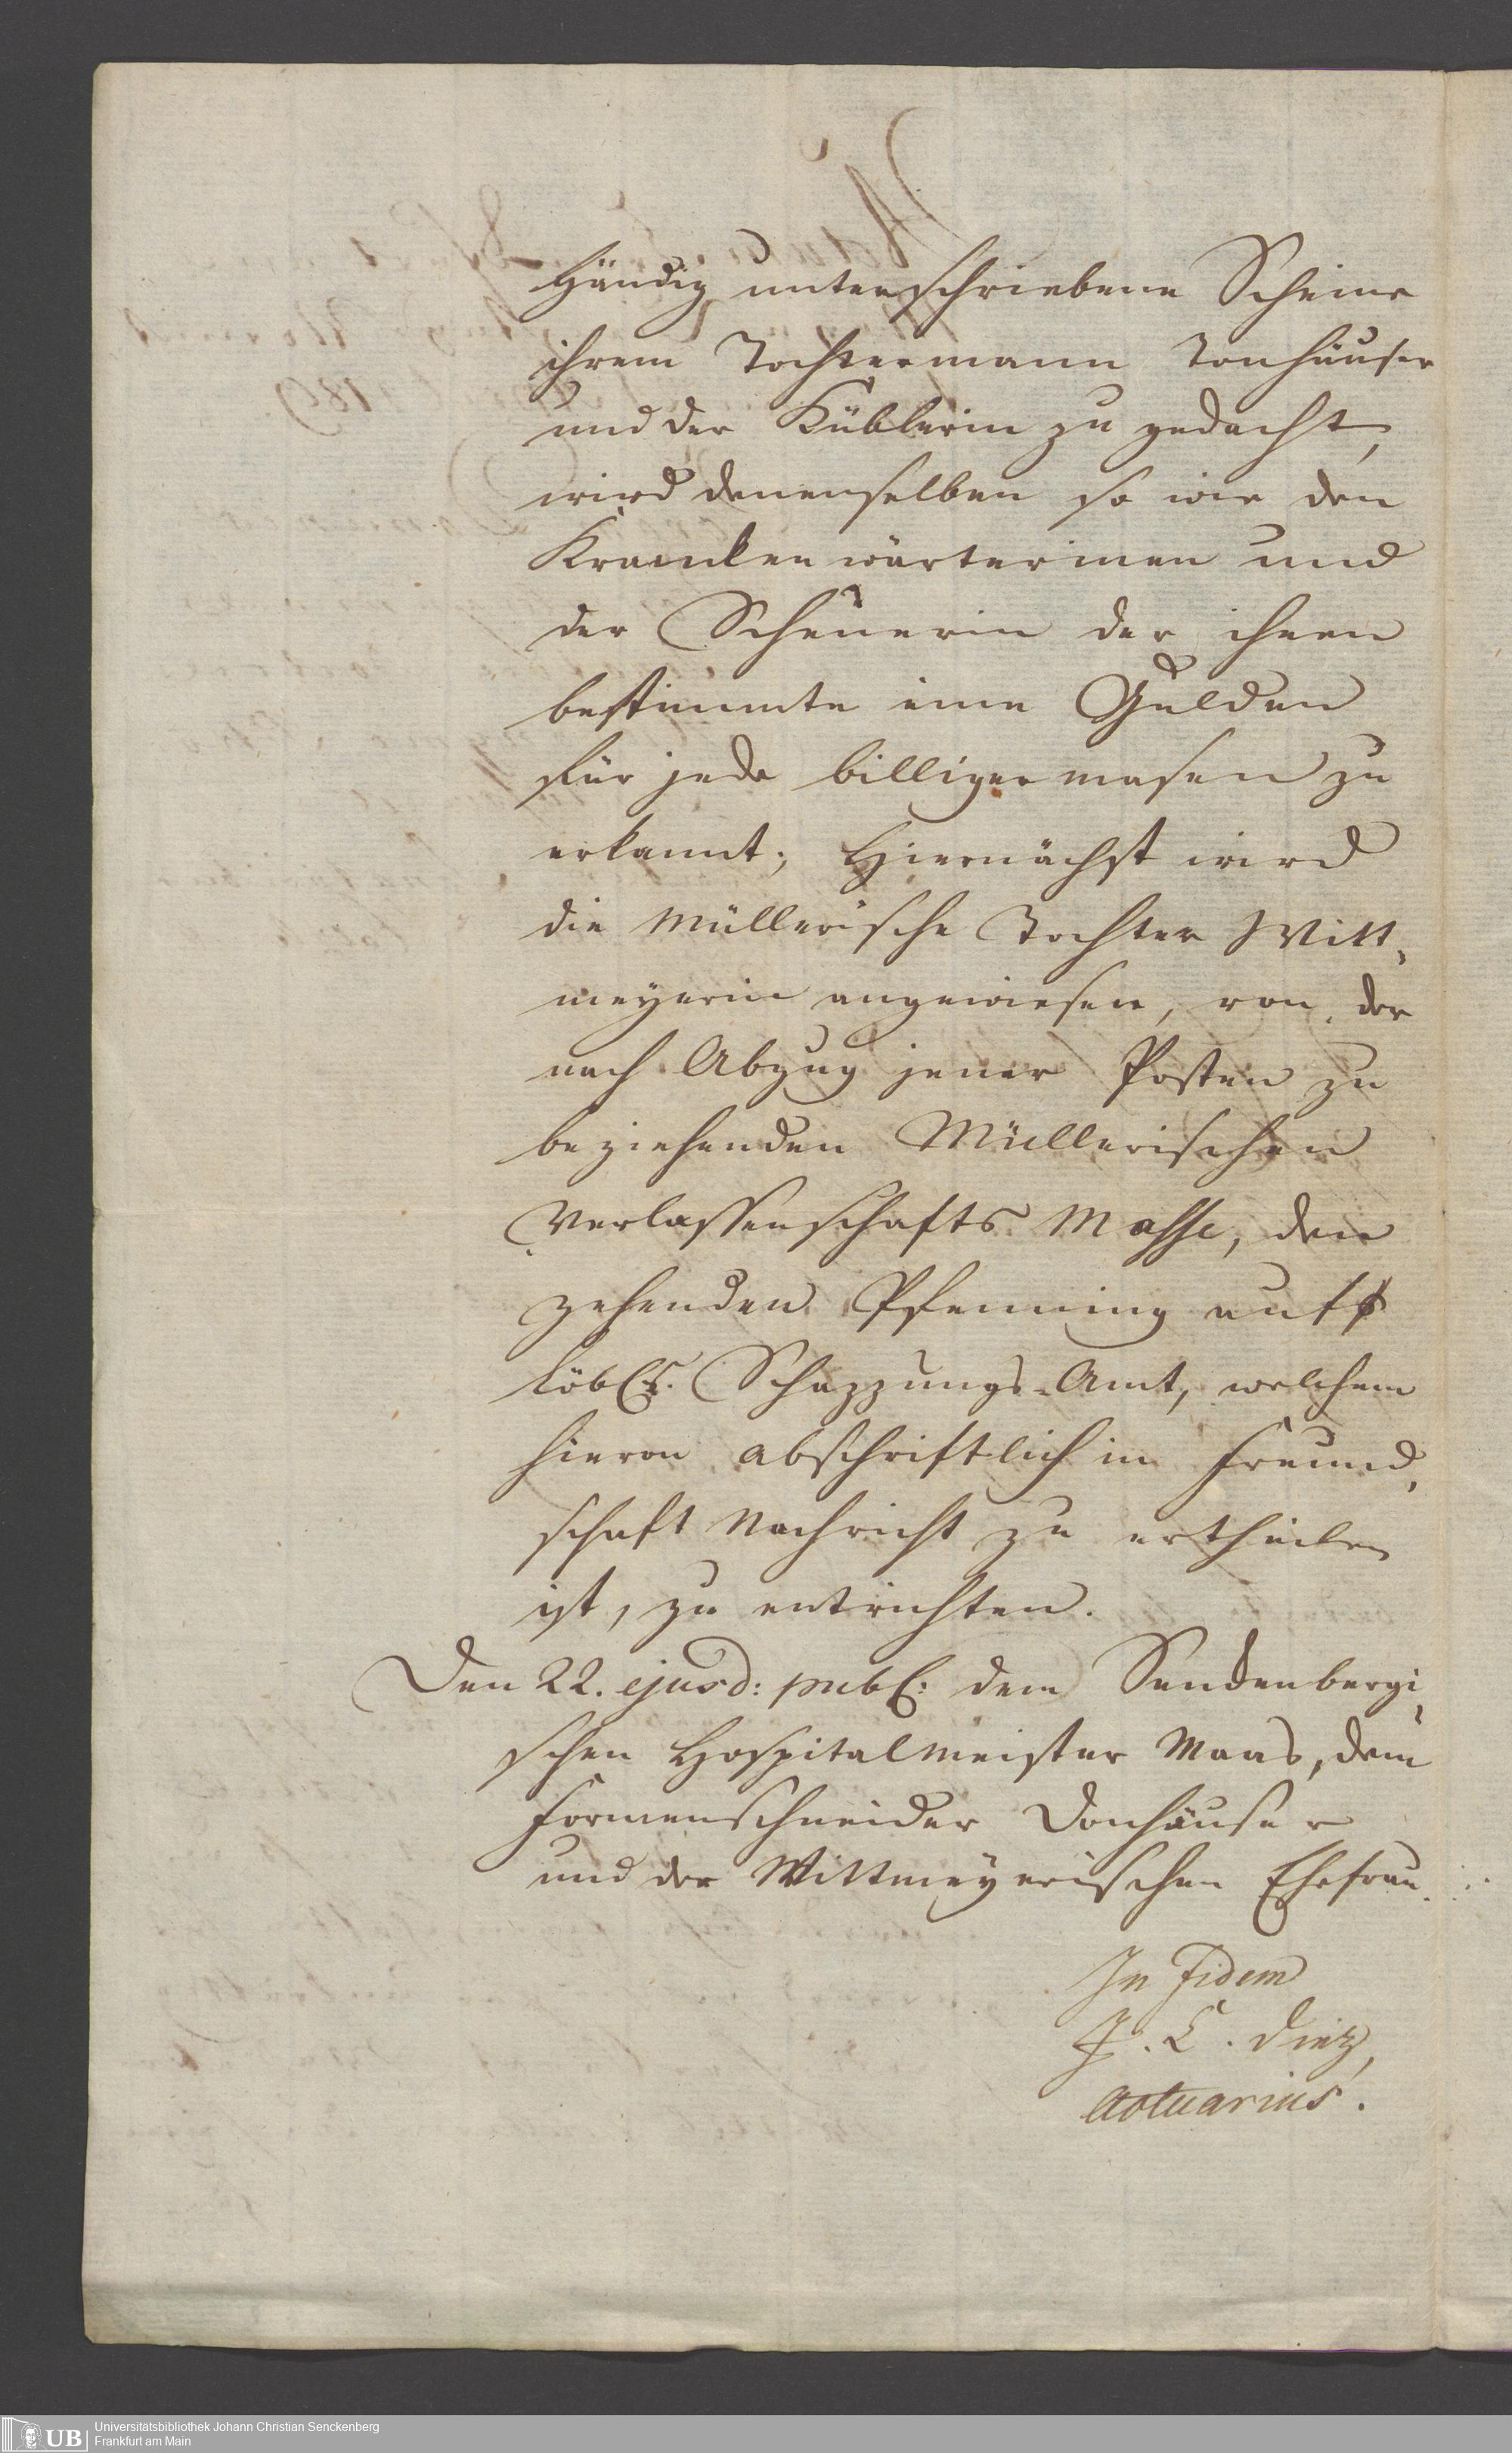 händig unterschriebene Scheine
ihrem Tochtermann Tonhäuser
und der Küblerin zu gedacht,
wird denenselben so wie den
Krancken wärterinen und
der Scheuerin der ihnen
bestimmte eine Gulden
für jede billiger masen zu
erkannt; Hiernächst wird
die Müllerische Tochter Witt,
meyerin angewiesen, von der
nach Abzug jener Posten zu
beziehenden Müllerischen
Verlassenschafts Masse, den
zehenden Pfenning auf
löbl. Schazzungs-Amt, welchem
hievon abschriftlich in Freund,
schaft Nachricht zu ertheilen
ist, zu entrichten.
Den 22. ejusd: publ: dem Senckenbergi,
schen Hospitalmeister Maas, dem
Formenschneider Donhäuser
und der Wittmeyerischen Ehefrau.
In Fidem
J. C. Diez,
Actuarius.
UB
Universitätsbibliothek Johann Christian Senckenberg
Frankfurt am Main